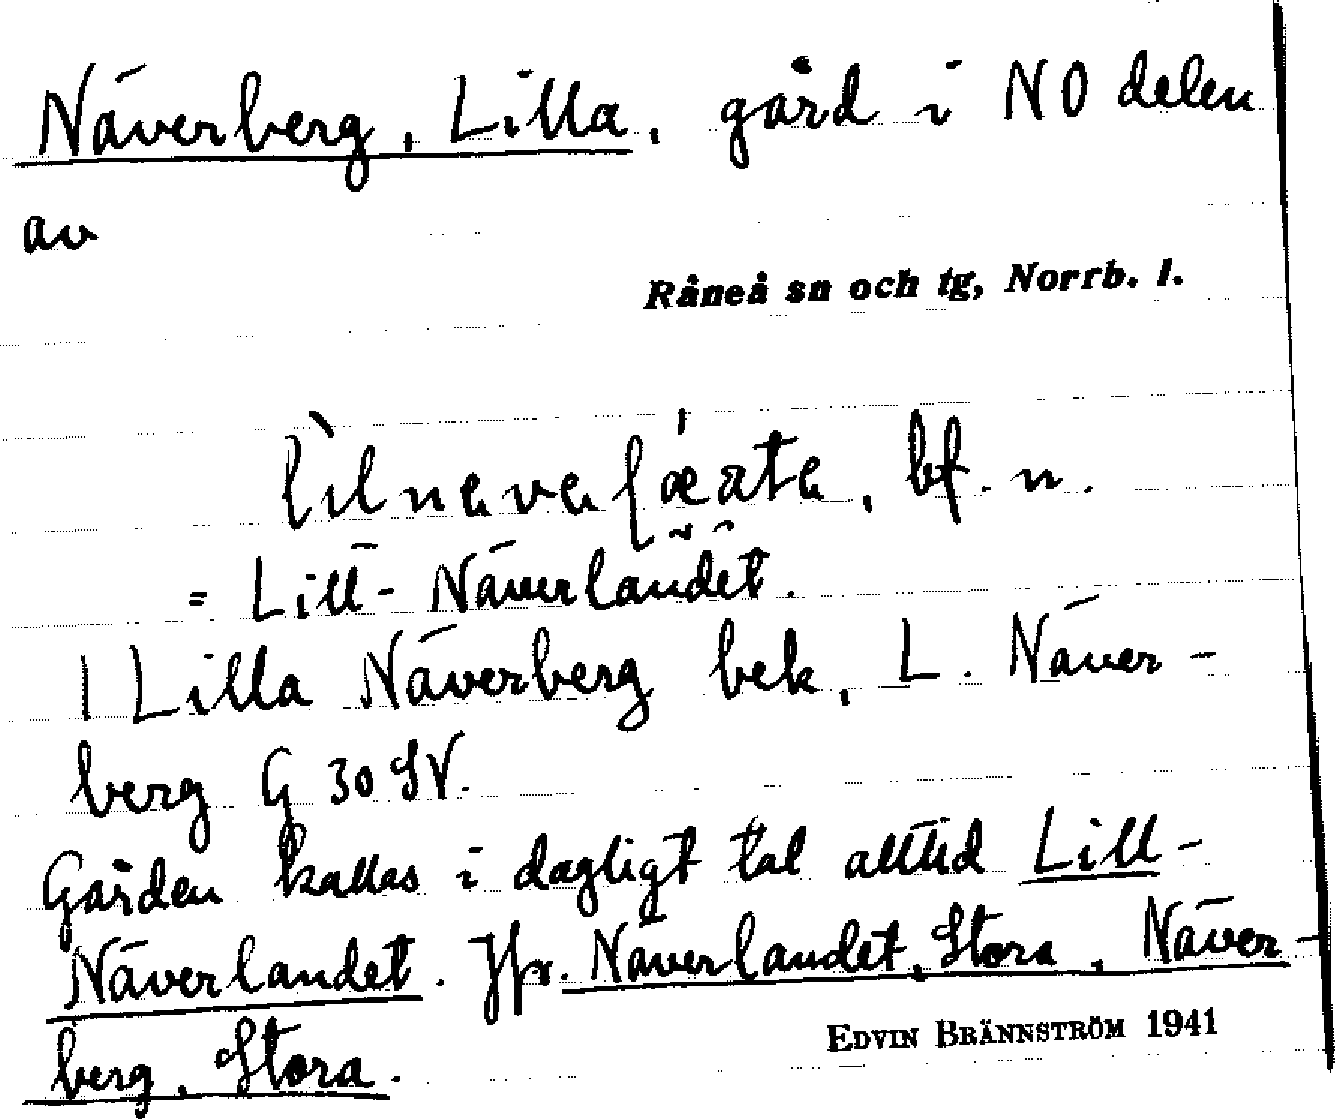 Näverberg, Lilla, gård i NO delen
av
Råneå sn och tg, Norrb. l.
bf. n.
= Lill-Näverlandet.
1 Lilla Näverberg bek, L. Näver-
berg G 30 SV.
Gården kallas i dagligt tal alltid Lill-
Näverlandet. Jfr. Näverlandet, Stora, Näver-
berg, Stora.
EDVIN BRÄNNSTRÖM 1941